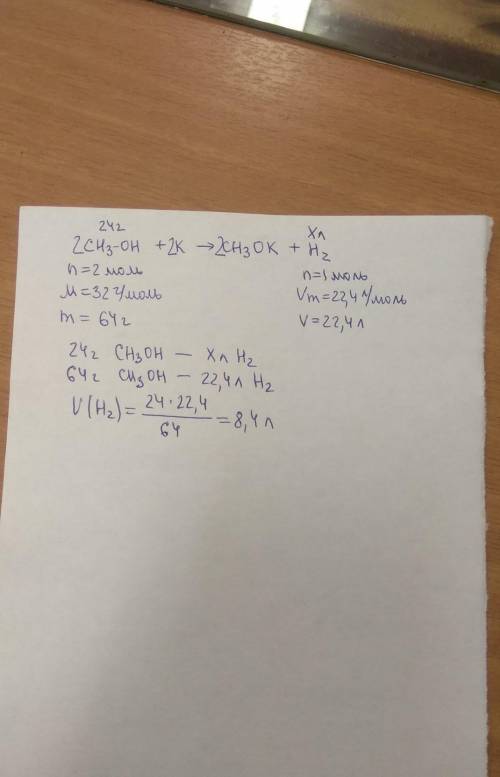 24г Xл
2CH3-OH + 2K → 2CH3OK + H2
n = 2 моль n = 1 моль
M = 32 г/моль Vm = 22,4 л/моль
m = 64 г V = 22,4 л
24г CH3OH — Xл H2
64г CH3OH — 22,4л H2
V(H2) = 24·22,4 / 64 = 8,4 л